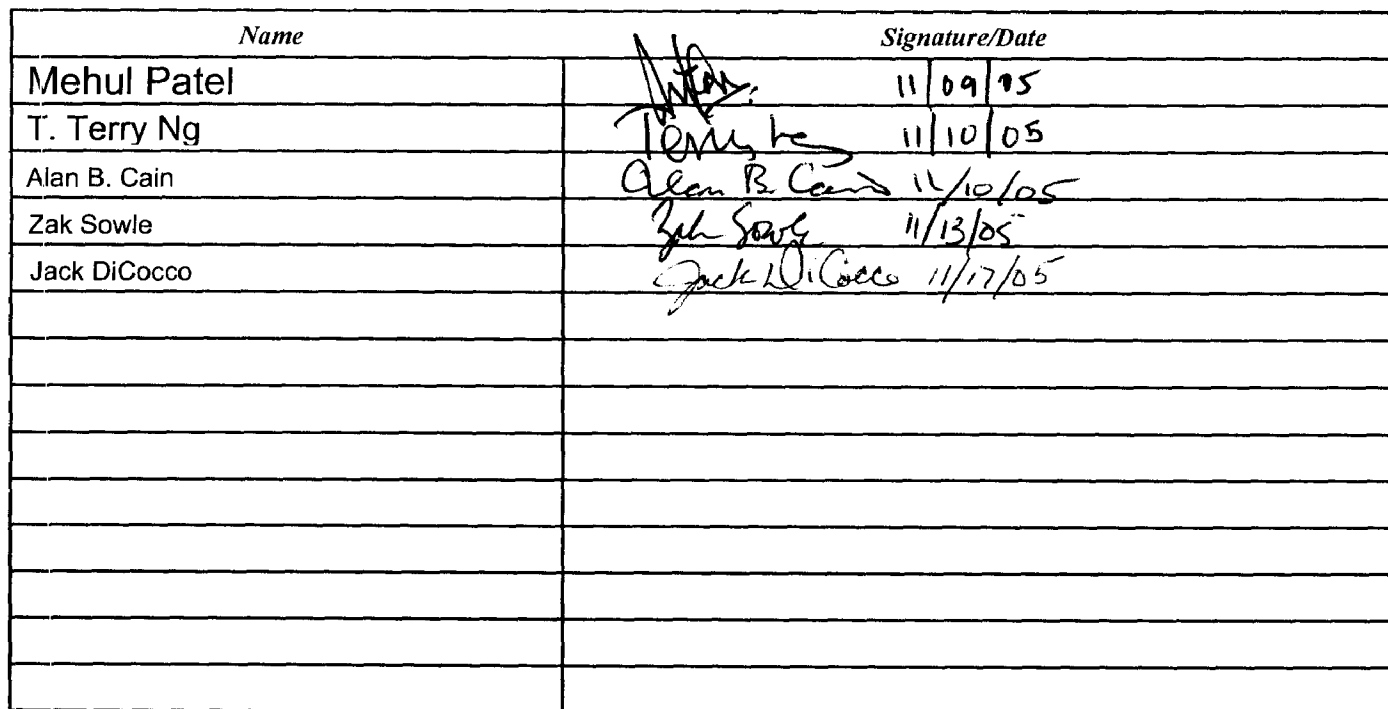 Name Signature/Date
Mehul Patel 11/09/05
T. Terry Ng Terry Ng 11/10/05
Alan B. Cain Alan B. Cain 11/10/05
Zak Sowle Zak Sowle 11/13/05
Jack DiCocco Jack DiCocco 11/17/05